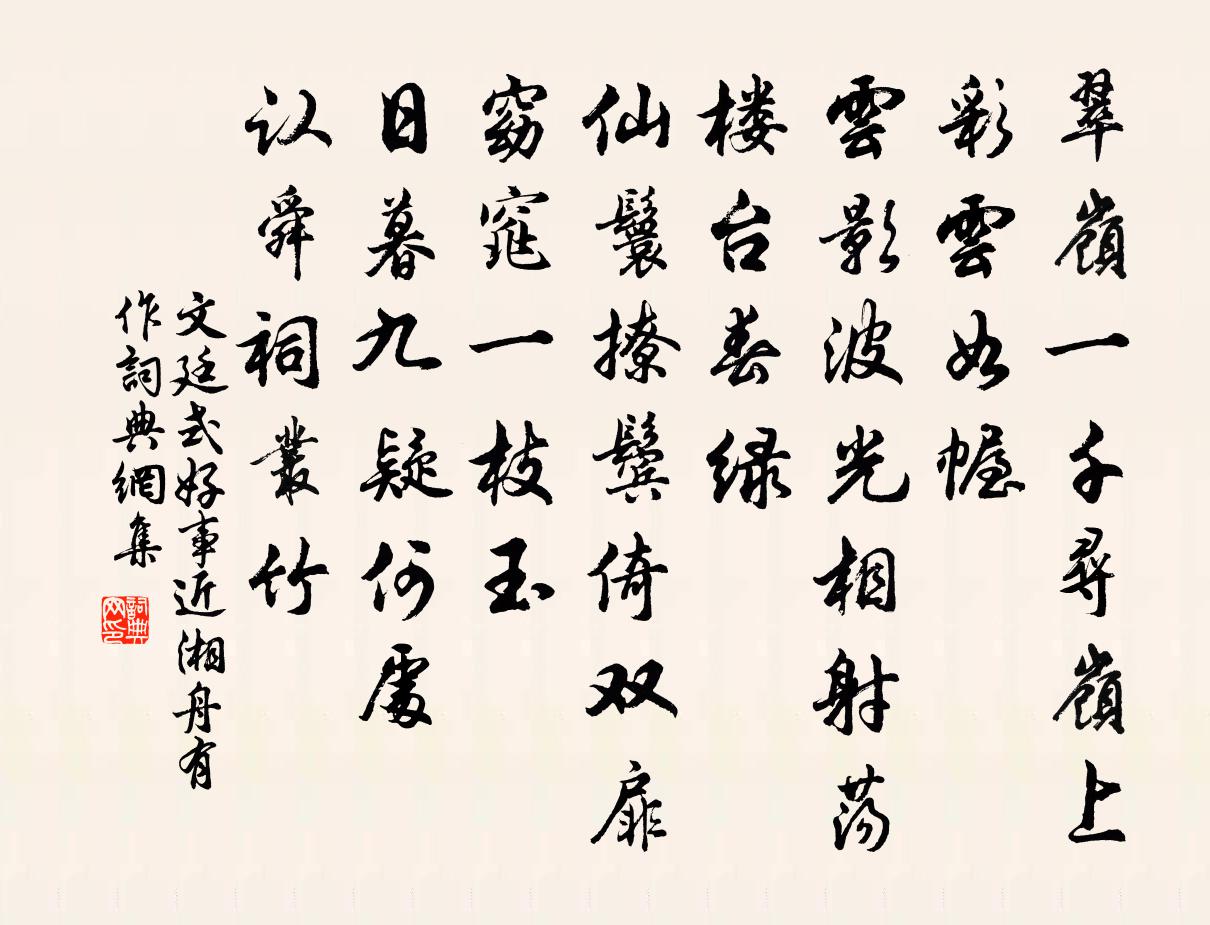 翠嶺一千尋嶺上
彩雲如幄
雲影波光相射蕩
楼台春绿
仙鬟撩鬓倚双扉
窈窕一枝玉
日暮九疑何處
认舜祠叢竹
文廷式好事近湘舟有
作詞典網集
詞典网印